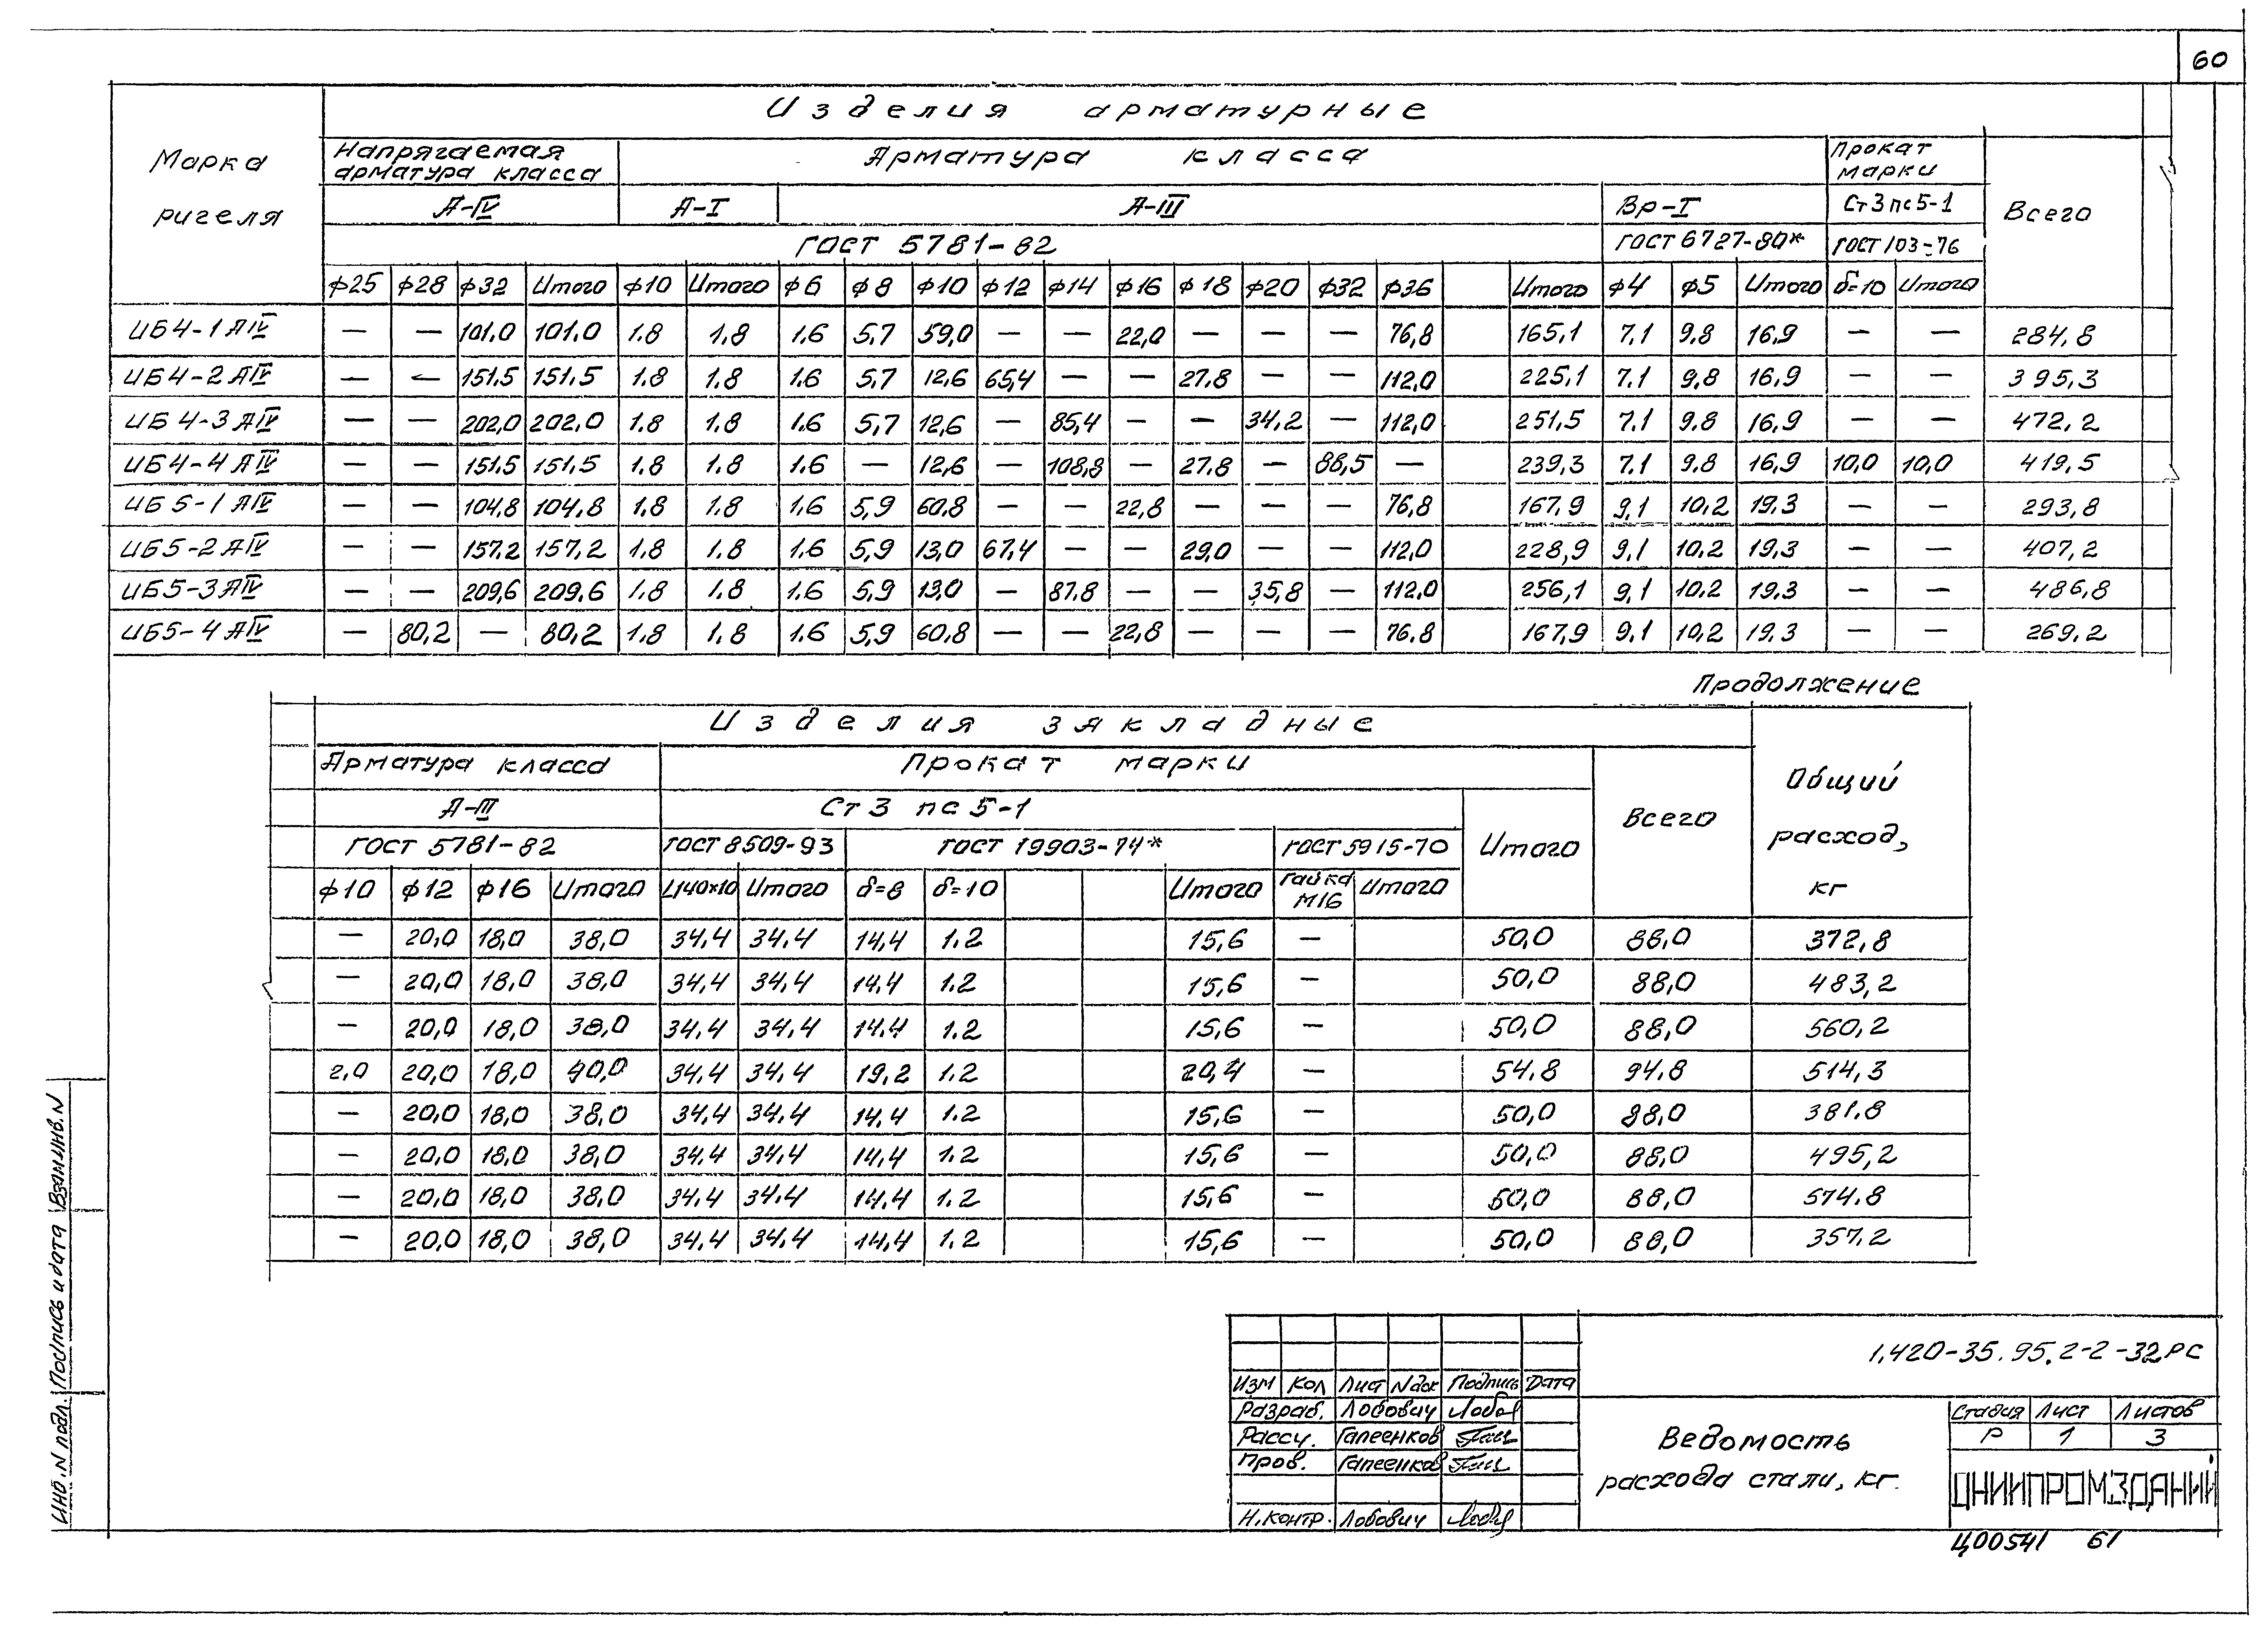 60
Изделия арматурные
Марка ригеля
Напрягаемая арматура класса
Арматура класса
Прокат марки
Всего
А-IV А-I А-III Вр-I Ст3пс5-1
ГОСТ 5781-82 ГОСТ 6727-80* ГОСТ 103-76
ф25 ф28 ф32 Итого ф10 Итого ф6 ф8 ф10 ф12 ф14 ф16 ф18 ф20 ф32 ф36 Итого ф4 ф5 Итого δ=10 Итого
ИБ4-1АIV — — 101,0 101,0 1.8 1.8 1.6 5,7 59,0 — — 22,0 — — — 76,8 165,1 7.1 9.8 16,9 — — 284,8
ИБ4-2АIV — — 151.5 151.5 1.8 1.8 1.6 5,7 12,6 65,4 — — 27.8 — — 112,0 225,1 7.1 9.8 16,9 — — 395,3
ИБ4-3АIV — — 202,0 202,0 1.8 1.8 1.6 5,7 12,6 — 85,4 — — 34,2 — 112,0 251,5 7.1 9.8 16,9 — — 472,2
ИБ4-4АIV — — 151.5 151,5 1.8 1.8 1.6 — 12,6 — 108,8 — 27.8 — 88,5 — 239,3 7.1 9.8 16,9 10,0 10,0 419,5
ИБ5-1АIV — — 104,8 104,8 1.8 1.8 1.6 5,9 60.8 — — 22,8 — — — 76,8 167,9 9,1 10,2 19.3 — — 293,8
ИБ5-2АIV — — 157.2 157,2 1.8 1.8 1.6 5,9 13,0 67,4 — — 29,0 — — 112,0 228,9 9,1 10.2 19,3 — — 407,2
ИБ5-3АIV — — 209,6 209.6 1.8 1.8 1.6 5,9 13,0 — 87.8 — — 35,8 — 112,0 256,1 9,1 10,2 19.3 — — 486,8
ИБ5-4АIV — 80,2 — 80,2 1.8 1.8 1.6 5,9 60,8 — — 22,8 — — — 76.8 167,9 9.1 10,2 19.3 — — 269,2
Продолжение
Изделия закладные
Арматура класса
Прокат марки
Всего
Общий расход, кг
А-III Ст3 пс5-1
Итого
ГОСТ 5781-82 ГОСТ 8509-93 ГОСТ 19903-74* ГОСТ 5915-70
ф10 ф12 ф16 Итого L140×10 Итого δ=8 δ=10 Итого Гайка М16 Итого
— 20,0 18,0 38,0 34.4 34.4 14,4 1.2 15,6 — 50,0 88,0 372,8
— 20,0 18,0 38,0 34,4 34,4 14,4 1.2 15,6 — 50,0 88,0 483,2
— 20,0 18,0 38,0 34,4 34,4 14,4 1.2 15,6 — 50,0 88,0 560,2
2,0 20,0 18,0 40,0 34,4 34,4 19,2 1.2 20,4 — 54.8 94.8 514,3
— 20,0 18,0 38,0 34,4 34,4 14,4 1.2 15,6 — 50,0 88,0 381.8
— 20,0 18,0 38,0 34,4 34,4 14,4 1.2 15,6 — 50,0 88,0 495,2
— 20,0 18,0 38,0 34,4 34,4 14,4 1.2 15,6 — 50,0 88,0 574.8
— 20,0 18,0 38,0 34,4 34,4 14,4 1.2 15,6 — 50,0 88,0 357.2
Инв.N подл. Подпись и дата Взам.инв.N
1.420-35.95.2-2-32РС
Изм Кол Лист Nдок Подпись Дата
Разраб. Лобович
Рассч. Гапеенков
Пров. Гапеенков
Н.контр. Лобович
Ведомость
расхода стали, кг.
Стадия Лист Листов
Р 1 3
ЦНИИПРОМЗДАНИЙ
Ц00541 61